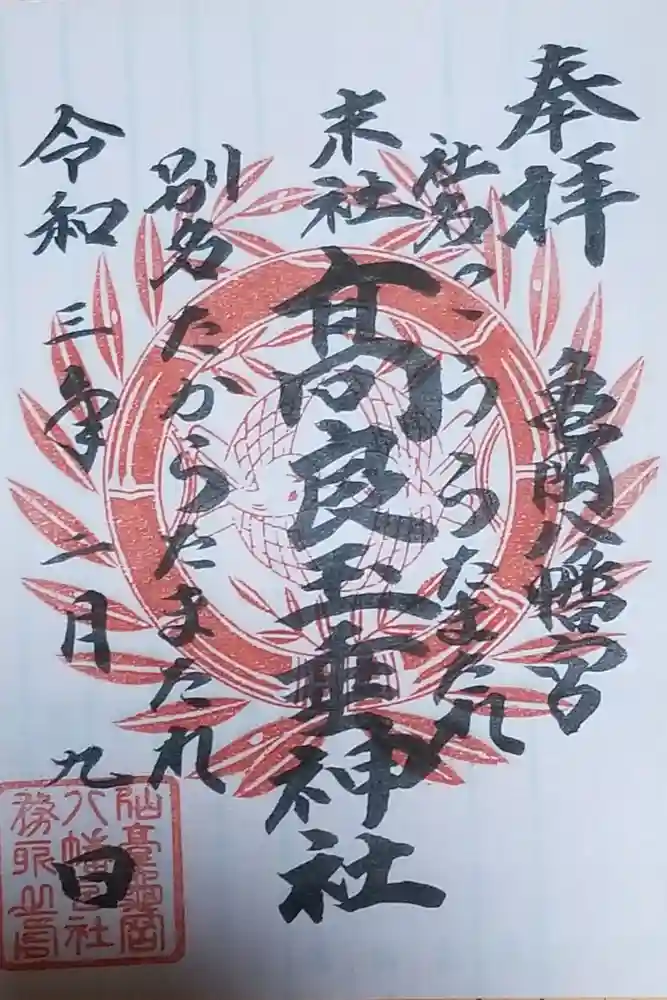 奉拝
亀岡八幡宮
社名 こうらたまたれ
末社
髙良玉垂神社
別名 たからたまたれ
令和三年二月九日
仙臺龜岡
八幡宮社
務所之印